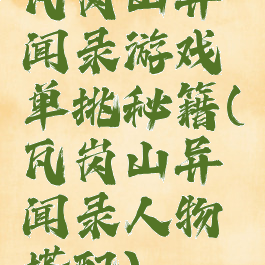 瓦岗山异
闻录游戏
单挑秘籍(
瓦岗山异
闻录人物
搭配)